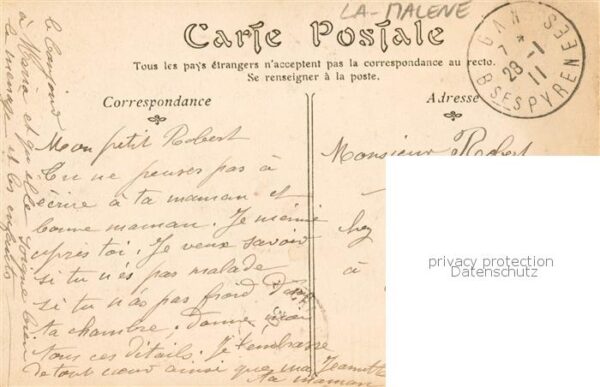 LA-MALENE
Carte Postale
Tous les pays étrangers n'acceptent pas la correspondance au recto.
Se renseigner à la poste.
Correspondance
Adresse
GAN
7 * 28 -1 11
BSES PYRENEES
Mon petit Robert
Tu ne penses pas à
écrire à ta maman et
bonne maman. Je
après toi. Je veux savoir
si tu n'es pas malade
si tu n'as pas froid Dans
ta chambre. Donne moi
tous ces détails. Je t'embrasse
de tout cœur ainsi que
Jeannette
ta maman
à Maria et qu'elle soigne bien
le ménage et les enfants
Monsieur Robert
chez
à
privacy protection
Datenschutz